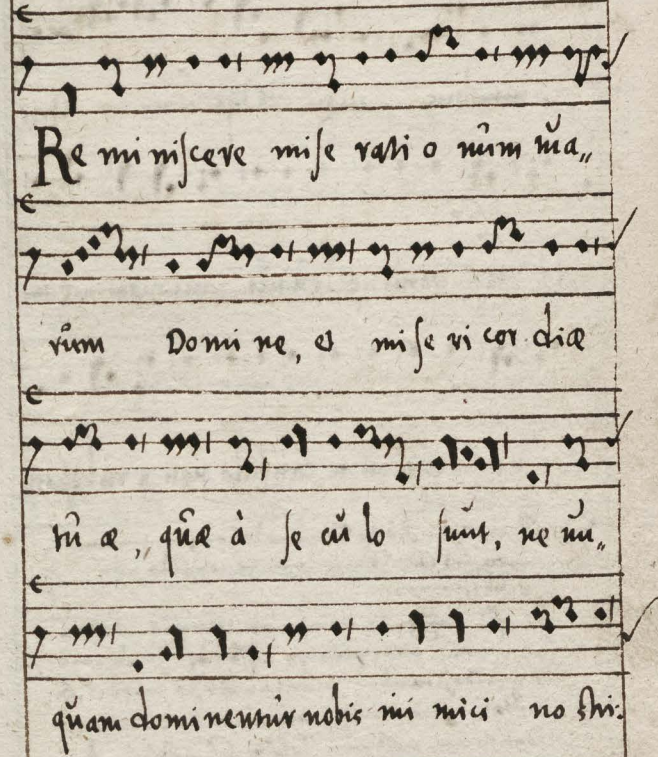 Re mi niscere mise rati o nûm tũa„
rũm Domi ne, et mi se ri cor diæ
tũ æ, quæ à se cũ lo sunt, ne ũn„
quam dominentũr nobis ini mici no stri: